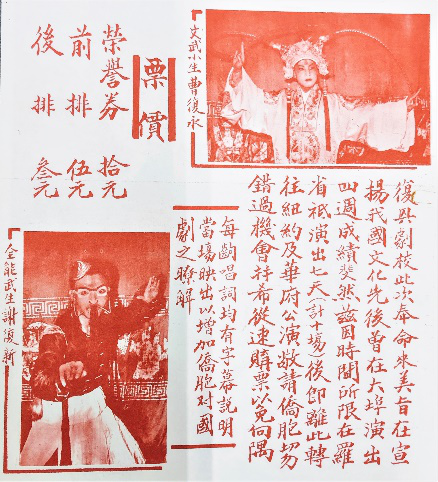 文武小生曹復永
票價
榮譽券 拾元
前排 伍元
後排 叁元
復興劇校此次奉命來美旨在宣
揚我國文化先後曾在大埠演出
四週成績斐然茲因時間所限在羅
省祇演出七天(計十場)後即離此轉
往紐約及華府公演敬請僑胞勿
錯過機會特希從速購票以免向隅
每齣唱詞均有字幕說明
當場映出以增加僑胞對國
劇之瞭解
全能武生謝復新